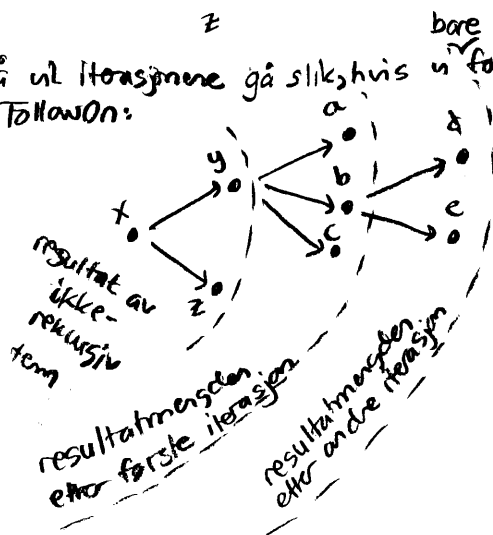 z
bare
å vil iterasjonene gå slik, hvis vi fo
FollowOn:
a
d
y
b
x
c
e
z
resultat av
ikke-
rekursiv
term
resultatmengden
etter første iterasjon
resultatmengden
etter andre iterasjon